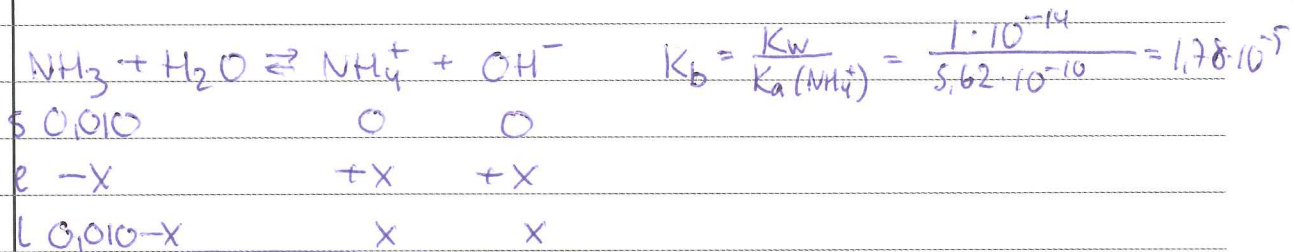 NH₃ + H₂O ⇌ NH₄⁺ + OH⁻ K_b = K_w / K_a (NH₄⁺) = 1·10⁻¹⁴ / 5,62·10⁻¹⁰ = 1,78·10⁻⁵
s 0,010 0 0
e -x +x +x
l 0,010-x x x